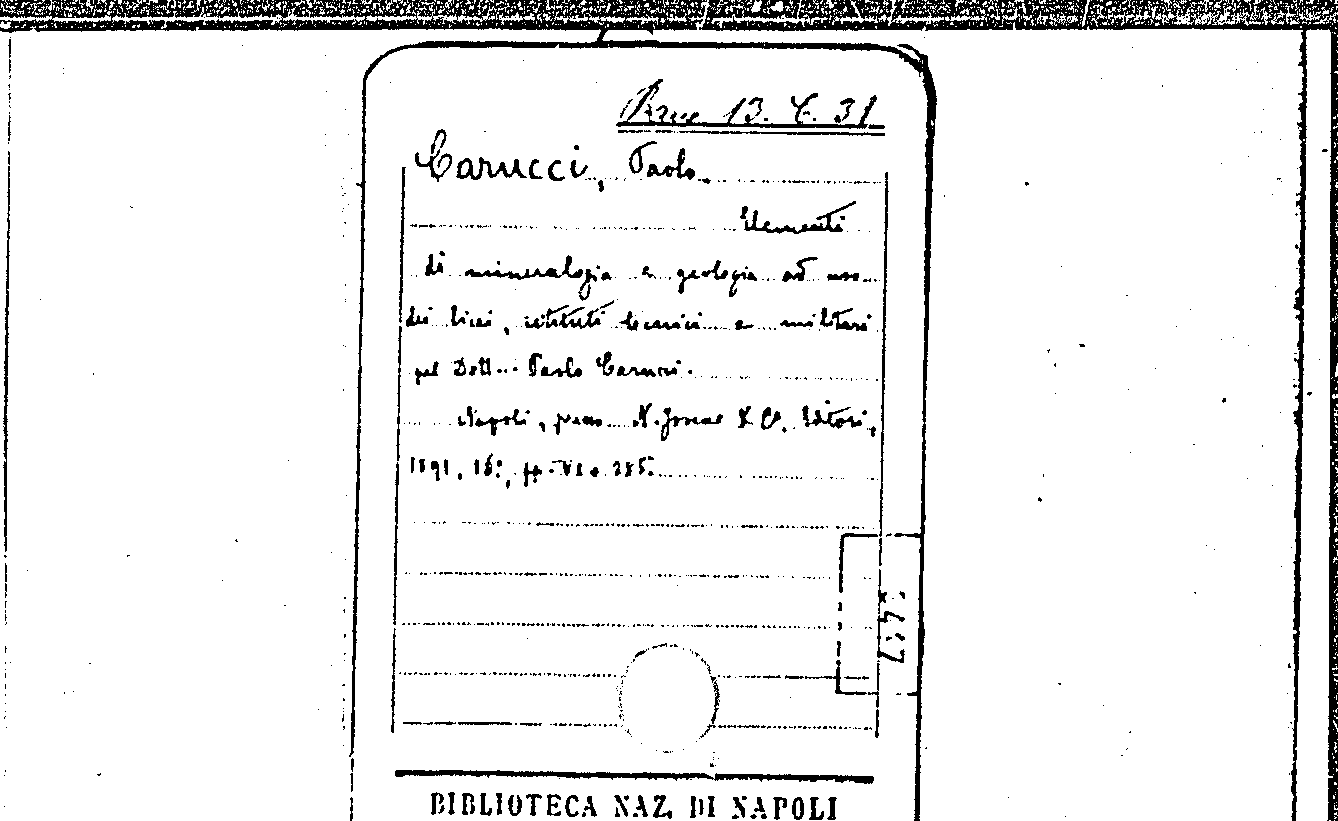 13. C. 31
Carucci, Paolo.
Elementi
di mineralogia e geologia ad uso
dei licei, istituti tecnici e militari
pel Dott. Paolo Carucci.
Napoli, presso N. Jovene & C°. Editori,
1891, 16°, pp. VI e 285.
BIBLIOTECA NAZ. DI NAPOLI